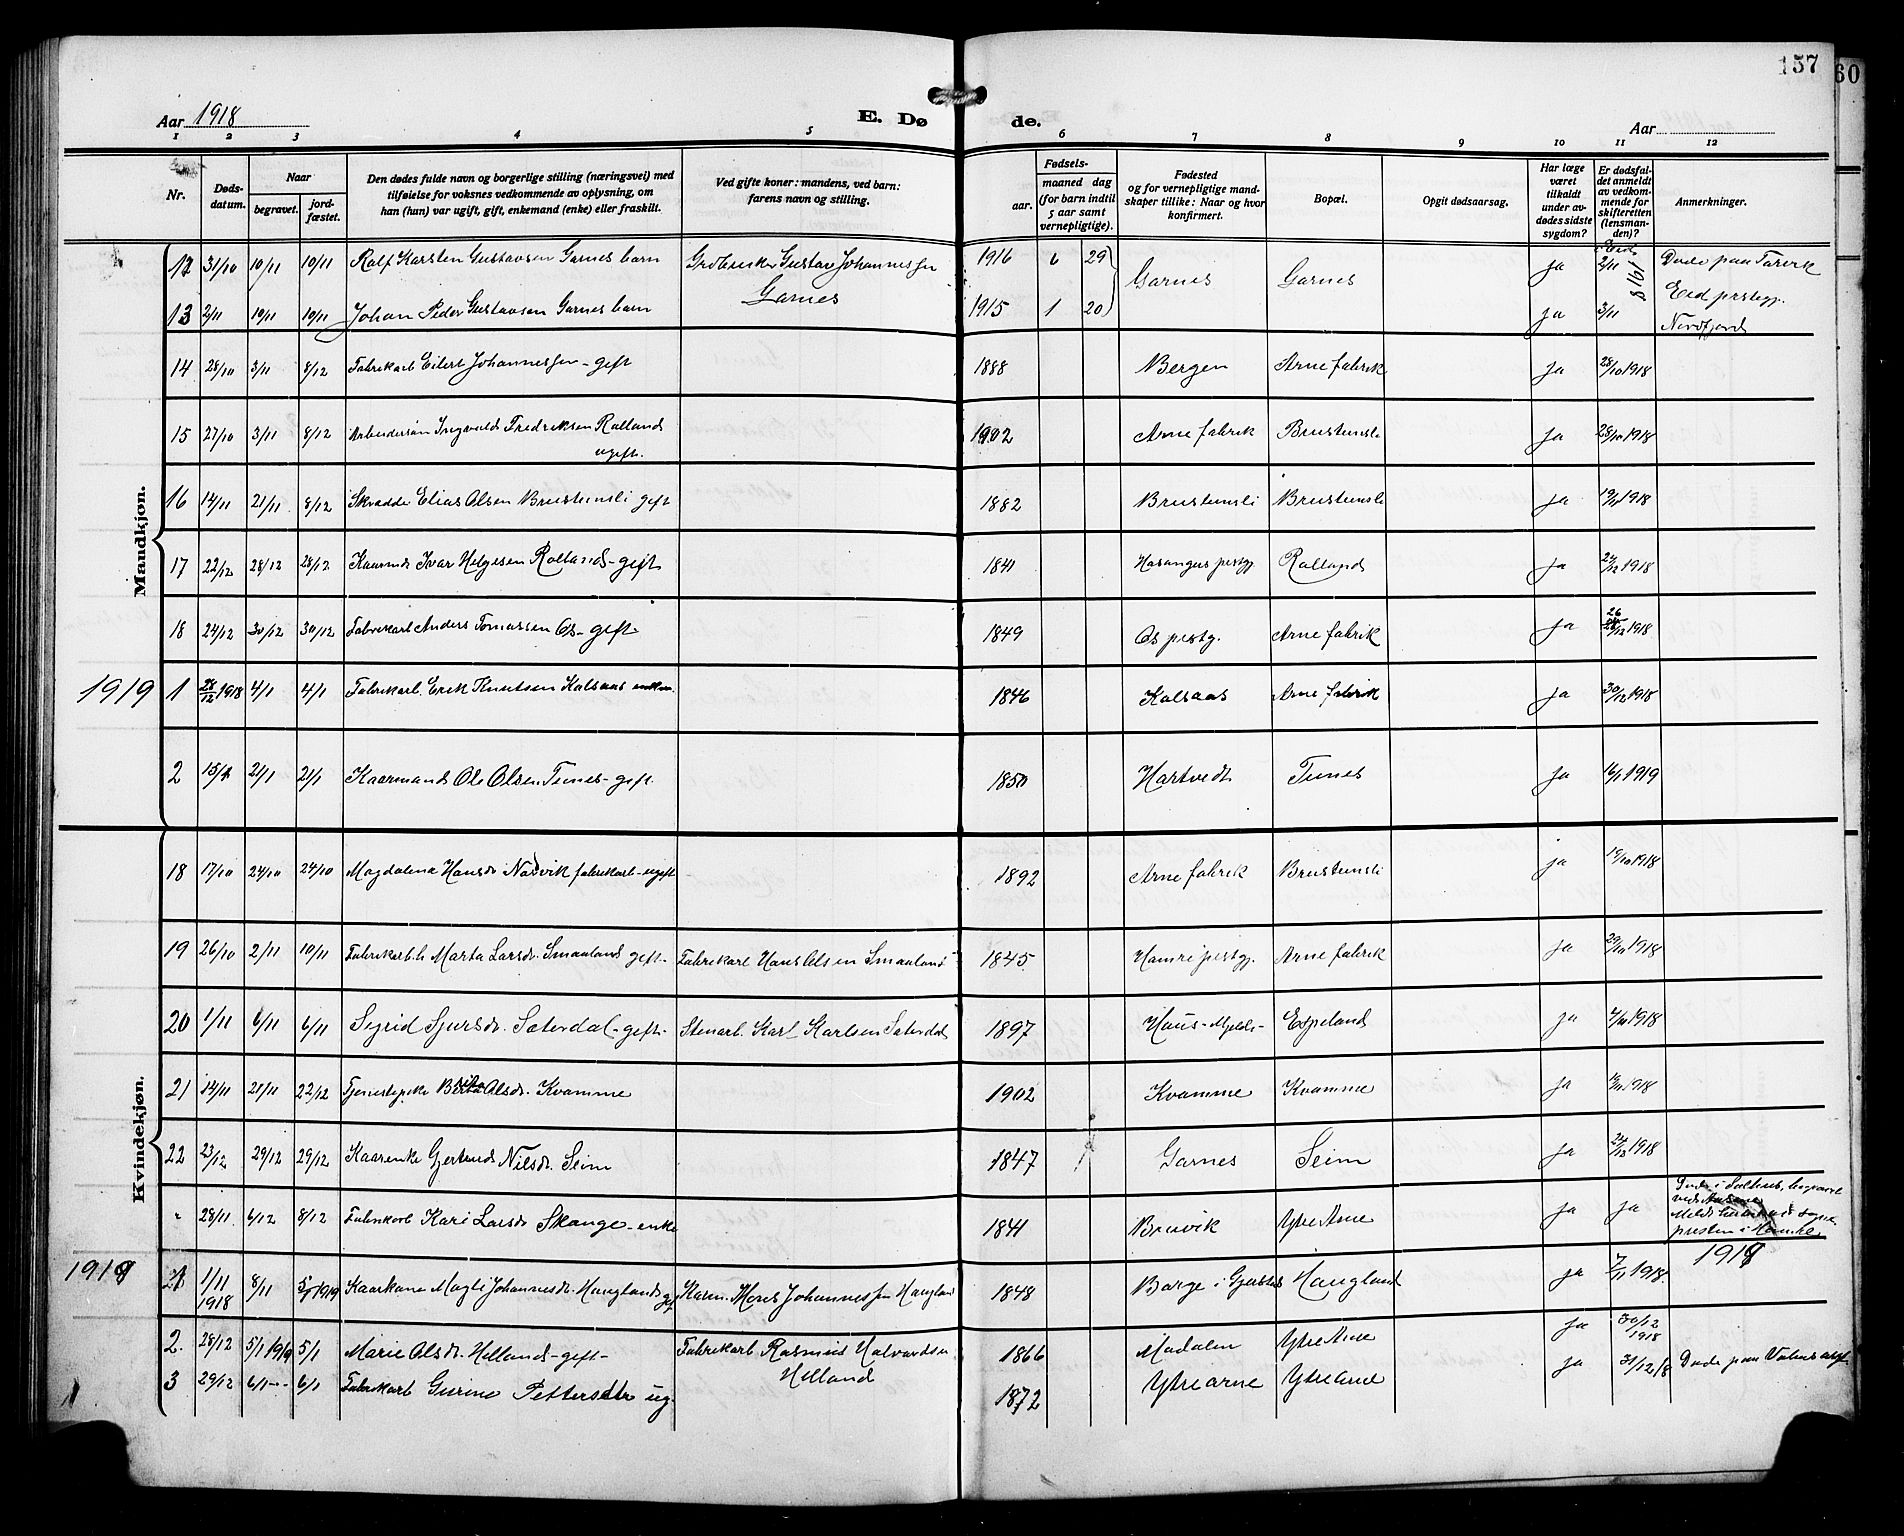 157
60
Aar 1918
E. Dø de.
Aar
1 2 3 4 5 6 7 8 9 10 11 12
Nr.
Døds-
datum.
Naar
begravet.
jord-
fæstet.
Den dødes fulde navn og borgerlige stilling (næringsvei) med
tilføielse for voksnes vedkommende av oplysning, om
han (hun) var ugift, gift, enkemand (enke) eller fraskilt.
Ved gifte koner: mandens, ved barn:
farens navn og stilling.
Fødsels-
aar.
maaned dag
(for barn indtil
5 aar samt
vernepligtige).
Fødested
og for vernepligtige mand-
skaper tillike: Naar og hvor
konfirmert.
Bopæl.
Opgit dødsaarsag.
Har læge
været
tilkaldt
under av-
dødes sidste
sygdom?
Er dødsfal-
det anmeldt
av vedkom-
mende for
skifteretten
(lensman-
den)?
Anmerkninger.
Mandkjøn.
12 31/10 10/11 10/11 Ralf Karsten Gustavsen Garnes barn Gustav Johannessen Garnes 1916 6 29 Garnes Garnes ja 2/11 1918 Døde paa
13 2/11 10/11 10/11 Johan Peder Gustavsen Garnes barn 1915 1 20 ja 3/11 Eid prestegj. Nordfjord
14 28/10 3/11 8/12 Fabrikarb Eilert Johannessen - gift 1888 Bergen Arne fabrik ja 28/10 1918
15 27/10 3/11 8/12 Arbeidersøn Ingvald Fredriksen Rolland
ugift. 1902 Arne fabrik Brustunsli ja 28/10 1918
16 14/11 21/11 8/12 Skrædder Elias Olsen Brustunsli gift 1882 Brustunsli Brustunsli ja 19/11 1918
17 22/12 28/12 28/12 Kaarmd Ivar Helgesen Rolland - gift 1841 Hosanger pestgj. Rolland ja 24/12 1918
18 24/12 30/12 30/12 Fabrikarb Anders Tomassen Os - gift 1849 Os pestg. Arne fabrik ja 26/12 1918
1919 1 28/12 1918 4/1 4/1 Fabrikarb. Erik Knutsen Kalsaas enkm. 1846 Kalsaas Arne fabrik ja 30/12 1918
2 15/1 21/1 21/1 Kaarmand Ole Olsen Tunes - gift 1850 Hartvedt Tunes ja 16/1 1919
Kvindekjøn.
18 17/10 24/10 24/10 Magdalena Hansd. Nordvik fabrikarb - ugift 1892 Arne fabrik Brustunsli ja 19/10 1918
19 26/10 2/11 10/11 Fabrikarb.h Marta Larsd. Smaaland gift - Fabrikarb Hans Olsen Smaaland 1845 Hamre pestgj. Arne fabrik ja 29/10 1918
20 1/11 6/11 6/11 Sigrid Sjursd. Sæterdal - gift - Stenarb. Karl Karlsen Sæterdal 1897 Haus - Mjelde - Espeland ja 1918
21 14/11 21/11 22/12 Tjenestepike Brita Olsd. Kvamme 1902 Kvamme Kvamme ja 1918
22 23/12 29/12 29/12 Kaarenke Gjertrud Nilsd. Seim 1847 Garnes Seim ja 24/12 1918
" 28/11 6/12 8/12 Fabrikarb Kari Larsd Skange - enke 1841 Bruvik Ytre Arne ja ja Døde i Salhus, begravet
ved
presten i Hamre
1919
1919 1 1/11 1918 8/11 5/1 1919 Kaarkone Magli Johannesd. Haugland gift Kaarm. Mons Johannessen Haugland 1848 Borge i Haugland ja 7/11 1918
2. 28/12 5/1 1919 5/1 Marie Olsd. Helland - gift - Fabrikarb Rasmus Halvardsen Helland 1866 Madalen Ytre Arne ja 30/12 1918
3 29/12 6/1 - 6/1 Fabrikarb Gurine Pettersdtr ug. 1872 Ytrearne Ytre Arne ja 31/12 18 Døde paa